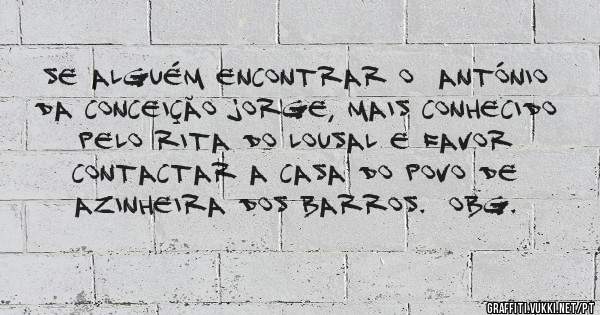 SE ALGUÉM ENCONTRAR O ANTÓNIO
DA CONCEIÇÃO JORGE, MAIS CONHECIDO
PELO RITA DO LOUSAL E FAVOR
CONTACTAR A CASA DO POVO DE
AZINHEIRA DOS BARROS. OBG.
GRAFFITI.VUKKI.NET/PT